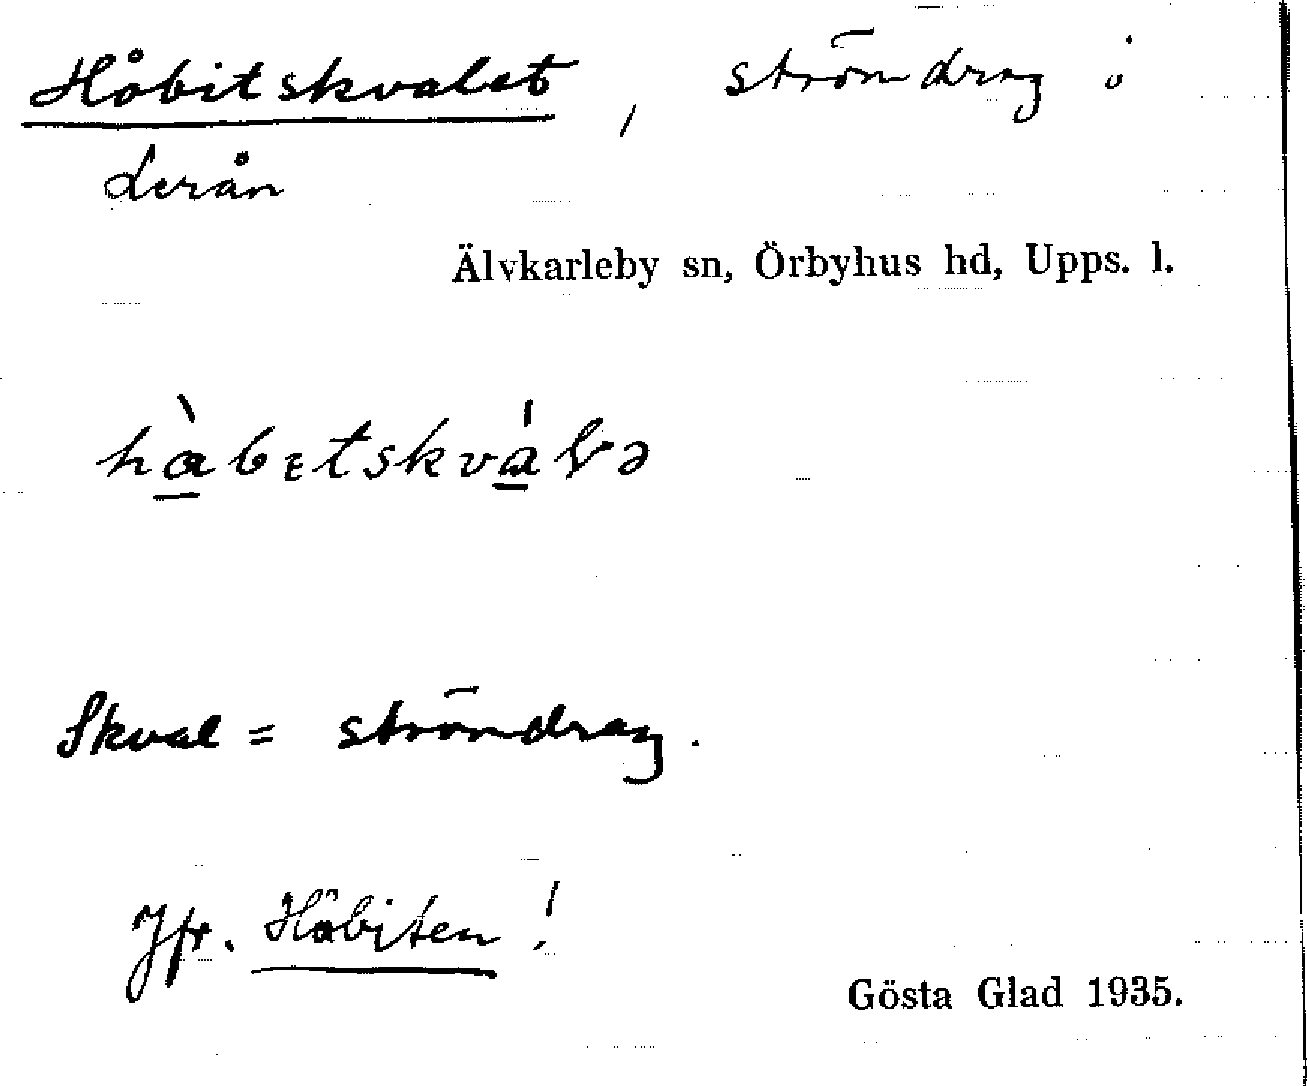 Håbitskvalet, strömdrag i
Lerån
Älvkarleby sn, Örbyhus hd, Upps. l.
Skval = strömdrag.
Jfr. Håbiten!
Gösta Glad 1935.